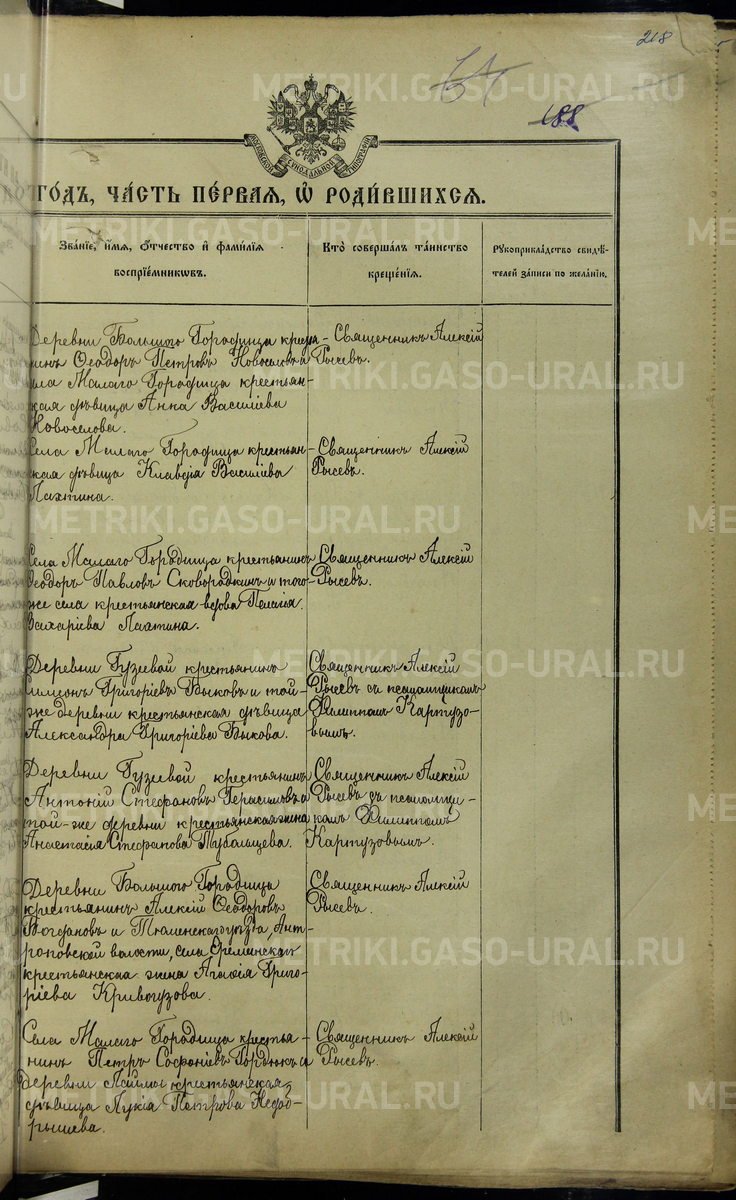 218
188
МОСКОВСКОЙ СѴНОДАЛЬНОЙ ТИПОГРАФІИ
ГО́ДЪ, ЧА́СТЬ ПЕ́РВАЯ, Ѡ҆ РОДИ́ВШИХСЯ.
Зва́нїе, и҆́мя, ѻ҆́тчество и҆ фами́лїя
воспрїе́мниковъ.
Кто̀ соверша́лъ та́инство
креще́нїя.
Рꙋкоприкла́дство свидѣ́-
телей за́писи по жела́нїю.
Деревни Большого Городища кресть-
янинъ Ѳеодоръ Петровъ Новоселовъ и
села Малаго Городища крестьян-
ская дѣвица Анна Васильева
Новоселова.
Священникъ Алексій
Рысевъ.
Села Малаго Городища крестьян-
ская дѣвица Клавдія Васильева
Лахтина.
Священникъ Алексій
Рысевъ.
Села Малаго Городища крестьянинъ
Ѳеодоръ Павловъ Сковородкинъ и того-
же села крестьянская вдова Пелагія
Захаріева Лахтина.
Священникъ Алексій
Рысевъ.
Деревни Гузеевой крестьянинъ
Симеонъ Григоріевъ Быковъ и той-
же деревни крестьянская дѣвица
Александра Григоріева Быкова.
Священникъ Алексій
Рысевъ съ псаломщикомъ
Филиппомъ Картузо-
вымъ.
Деревни Гузеевой крестьянинъ
Антоній Стефановъ Герасимовъ и
той-же деревни крестьянская жена
Анастасія Стефанова Тубольцева.
Священникъ Алексій
Рысевъ съ псаломщи-
комъ Филиппомъ
Картузовымъ.
Деревни Большого Городища
крестьянинъ Алексій Ѳеодоровъ
Богдановъ и Тюменскаго уѣзда, Ант-
роповской волости, села
крестьянская жена Агафія Григо-
ріева Кривогузова.
Священникъ Алексій
Рысевъ.
Села Малаго Городища крестья-
нинъ Петръ Софоніевъ Гордюкъ и
деревни крестьянская
дѣвица Лукія Петрова Недоб-
рышева.
Священникъ Алексій
Рысевъ.
METRIKI.GASO-URAL.RU
METRIKI.GASO-URAL.RU
METRIKI.GASO-URAL.RU
METRIKI.GASO-URAL.RU
METRIKI.GASO-URAL.RU
METRIKI.GASO-URAL.RU
METRIKI.GASO-URAL.RU
METRIKI.GASO-URAL.RU